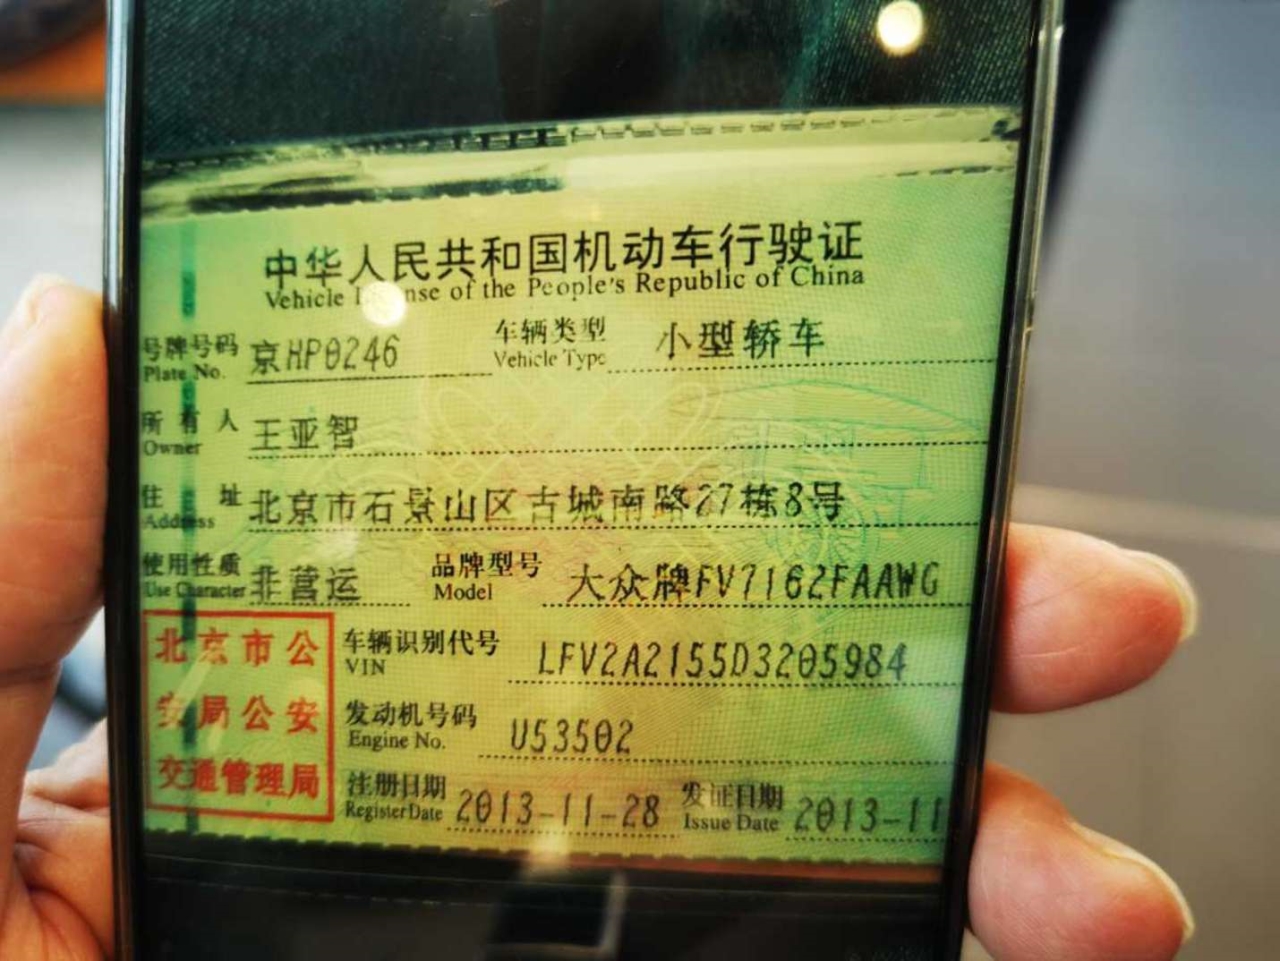 中华人民共和国机动车行驶证
Vehicle License of the People's Republic of China
号牌号码 京HP0246 车辆类型 小型轿车
Plate No. Vehicle Type
所有人 王亚智
Owner
住址 北京市石景山区古城南路27栋8号
Address
使用性质 非营运 品牌型号 大众牌FV7162FAAWG
Use Character Model
北京市公
安局公安
交通管理局
车辆识别代号 LFV2A2155D3205984
VIN
发动机号码 U53502
Engine No.
注册日期 2013-11-28 发证日期 2013-11
Register Date Issue Date